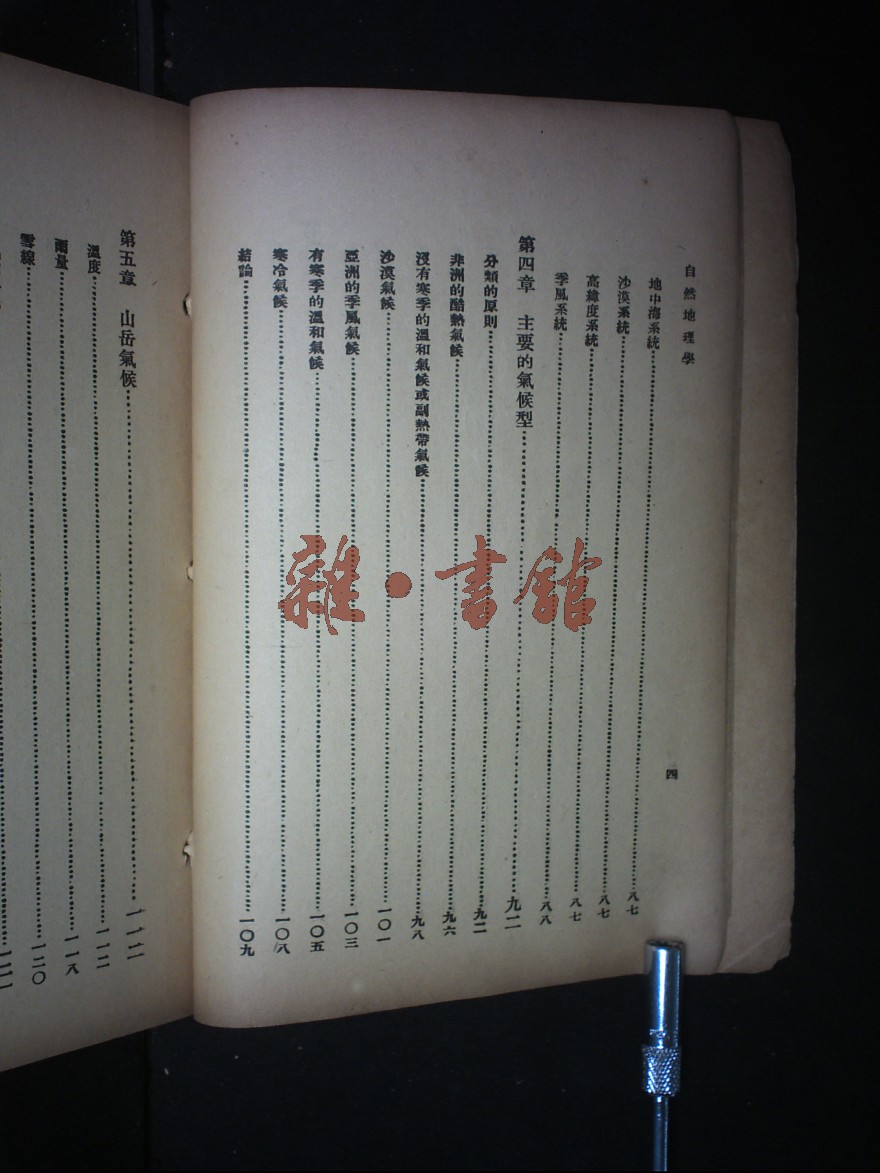 自然地理學
四
地中海系統……八七
沙漠系統……八七
高緯度系統……八七
季風系統……八八
第四章　主要的氣候型……九二
分類的原則……九二
非洲的酷熱氣候……九六
沒有寒季的溫和氣候或副熱帶氣候……九八
沙漠氣候……一〇一
亞洲的季風氣候……一〇三
有寒季的溫和氣候……一〇五
寒冷氣候……一〇八
結論……一〇九
第五章　山岳氣候……一一二
溫度……一一二
雨量……一一八
雪線……一二〇
雜·書館